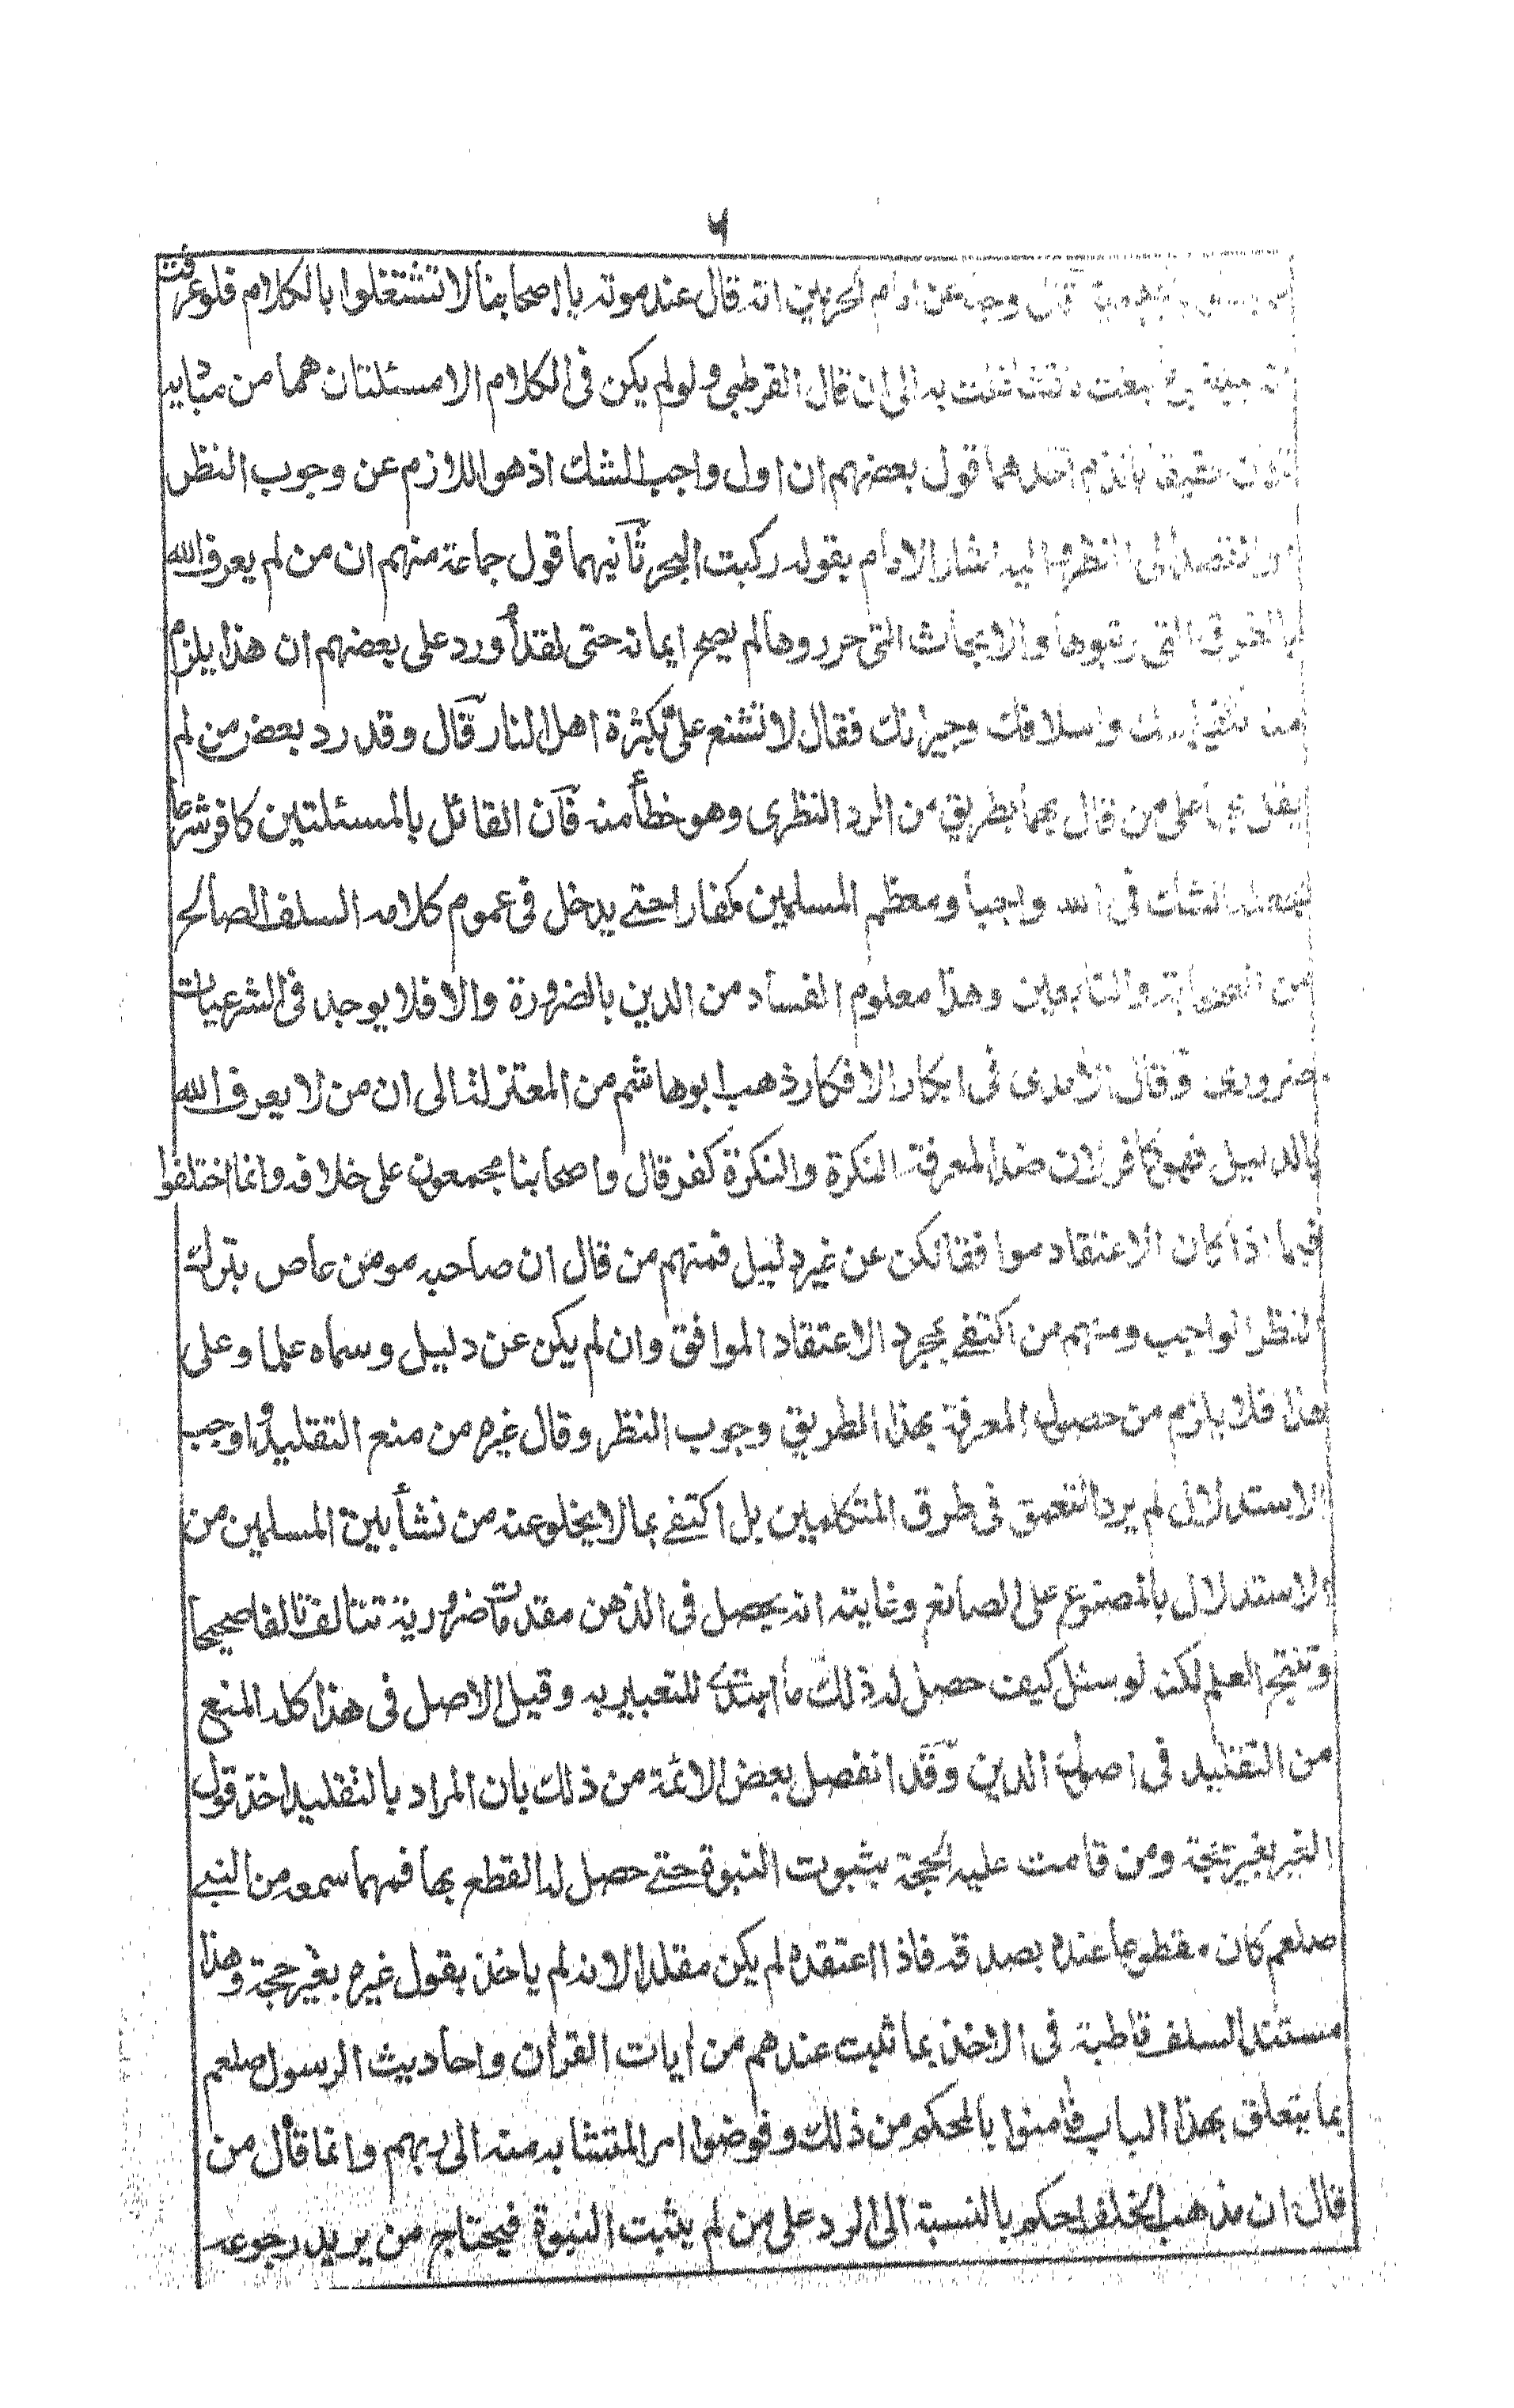 ٦
قال وجه عن امام الحرمين انه قال عند موته يا اصحابنا لا تشتغلوا بالكلام فلو عرفت
انه يبلغ بي ما بلغت ما تشاغلت به الى ان قال القرطبي ولو لم يكن فى الكلام الا مسئلتان هما من مباديه
حقيقا بالذم احدهما قول بعضهم ان اول واجب الشك اذ هو اللازم عن وجوب النظر
او القصد الى النظر واليه اشار الامام بقوله ركبت البحر ثانيهما قول جماعة منهم ان من لم يعرف الله
بالطرق التى رتبوها والابحاث التى حرروها لم يصح ايمانه حتى لقد اورد على بعضهم ان هذا يلزم
منه تكفير ابيك واسلافك وجيرانك فقال لا تشنع على بكثرة اهل النار قال وقد رد بعض من لم
يقل بهما على من قال بهما بطريق من الرد النظرى وهو خطأ منه فان القائل بالمسئلتين كافر شرعا
لجعله الشك فى الله واجبا ومعظم المسلمين كفارا حتى يدخل فى عموم كلامه السلف الصالح
من الصحابة والتابعين وهذا معلوم الفساد من الدين بالضرورة والا فلا يوجد فى الشرعيات
ضرورى وقال الآمدى فى ابكار الافكار ذهب ابو هاشم من المعتزلة الى ان من لا يعرف الله
بالدليل فهو كافر لان ضد المعرفة النكرة والنكرة كفر قال واصحابنا مجمعون على خلافه وانما اختلفوا
فيما اذا كان الاعتقاد موافقا لكن عن غير دليل فمنهم من قال ان صاحبه مومن عاص بترك
النظر الواجب ومنهم من اكتفى بمجرد الاعتقاد الموافق وان لم يكن عن دليل وسماه علما وعلى
هذا فلا يلزم من حصول المعرفة بهذا الطريق وجوب النظر وقال غيره من منع التقليد واوجب
الاستدلال لم يرد التعمق فى طرق المتكلمين بل اكتفى بما لا يخلو عنه من نشأ بين المسلمين من
الاستدلال بالمصنوع على الصانع وغايته انه يحصل فى الذهن مقدمات ضرورية تتالف تالفا صحيحا
وتنتج العلم لكنه لو سئل كيف حصل له ذلك ما اهتدى للتعبير به وقيل الاصل فى هذا كله المنع
من التقليد فى اصول الدين وقد انفصل بعض الائمة من ذلك بان المراد بالتقليد اخذ قول
الغير بغير حجة ومن قامت عليه الحجة بثبوت النبوة حتى حصل له القطع بها فمهما سمعه من النبى
صلعم كان مقطوعا عنده بصدقه فاذا اعتقده لم يكن مقلدا لانه لم ياخذ بقول غيره بغير حجة وهذا
مستند السلف قاطبة فى الاخذ بما ثبت عندهم من ايات القرآن واحاديث الرسول صلعم
بما يتعلق بهذا الباب فامنوا بالمحكم من ذلك وفوضوا امر المتشابه منه الى ربهم وانما قال من
قال ان مذهب الخلف احكم بالنسبة الى الرد على من لم يثبت النبوة فيحتاج من يريد رجوعه